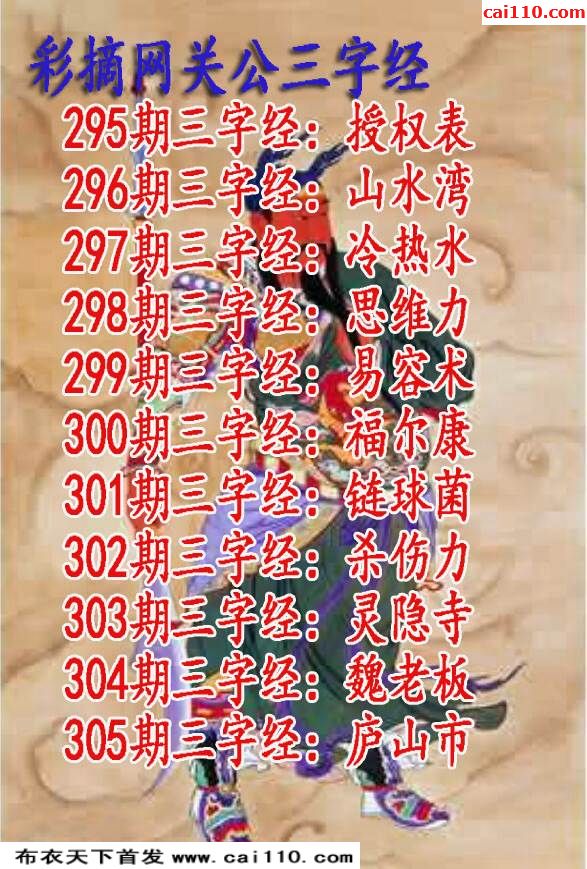 cai110.com
彩摘网关公三字经
295期三字经：授权表
296期三字经：山水湾
297期三字经：冷热水
298期三字经：思维力
299期三字经：易容术
300期三字经：福尔康
301期三字经：链球菌
302期三字经：杀伤力
303期三字经：灵隐寺
304期三字经：魏老板
305期三字经：庐山市
布衣天下首发 www.cai110.com